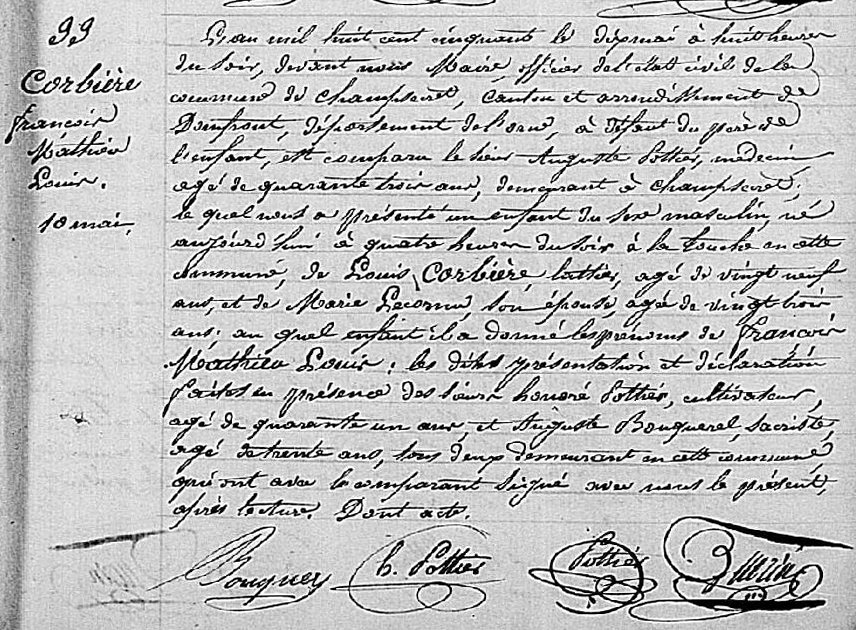 33
Corbière
François
Mathieu
Louis.
10 mai,
L'an mil huit cent cinquante le dix mai à huit heures
du soir, devant nous Maire, officier de l'état civil de la
commune de Champsecret, canton et arrondissement de
Domfront, département de l'orne, à défaut du père de
l'enfant, est comparu le sieur Auguste Pottier, médecin,
agé de quarante trois ans, demeurant à Champsecret;
le quel nous a présenté un enfant du sexe masculin, né
aujourd'hui à quatre heures du soir à la touche en cette
commune, de Louis Corbière, lattier, agé de vingt neuf
ans, et de Marie Lecornu, son épouse, agée de vingt trois
ans; au quel enfant il a donné les prénoms de françois
Mathieu Louis; les dites présentation et déclaration
faites en présence des sieurs honoré Pottier, cultivateur,
agé de quarante un ans, et Auguste Bouquerel, sacriste,
agé de trente ans, tous deux demeurant en cette commune,
qui ont avec le comparant signé avec nous le présent,
après lecture. Dont acte.
h. Pottier Pottier